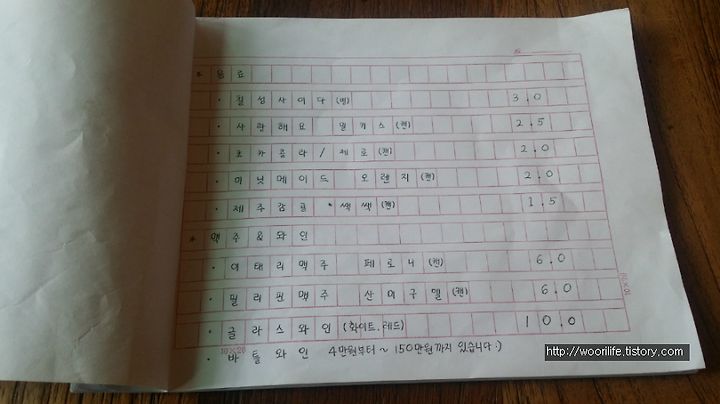 * 음료
· 칠성사이다 (병) 3.0
· 사랑해요 밀키스 (캔) 2.5
· 코카콜라/제로 (캔) 2.0
· 미닛메이드 오렌지 (캔) 2.0
· 제주감귤 * 쌕쌕 (캔) 1.5
* 맥주 & 와인
· 이태리맥주 페로니 (캔) 6.0
· 필리핀맥주 산미구엘 (캔) 6.0
· 글라스와인 (화이트, 레드) 10.0
10×20
· 바틀와인 4만원부터 ~ 150만원까지 있습니다:)
http://woorilife.tistory.com